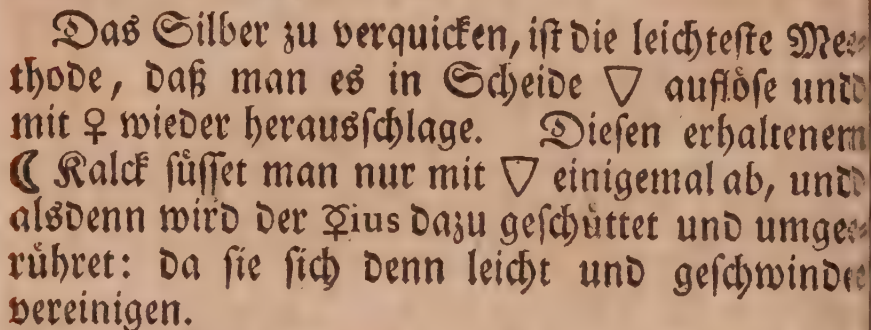 Das Silber zu verquicken, ist die leichteste Me⸗
thode, daß man es in Scheide ▽ auflöse und
mit ♀ wieder herausschlage. Diesen erhaltenen
☾ Kalck süsset man nur mit ▽ einigemal ab, und
alsdenn wird der ☿ius dazu geschüttet und umge⸗
rühret: da sie sich denn leicht und geschwinde
vereinigen.